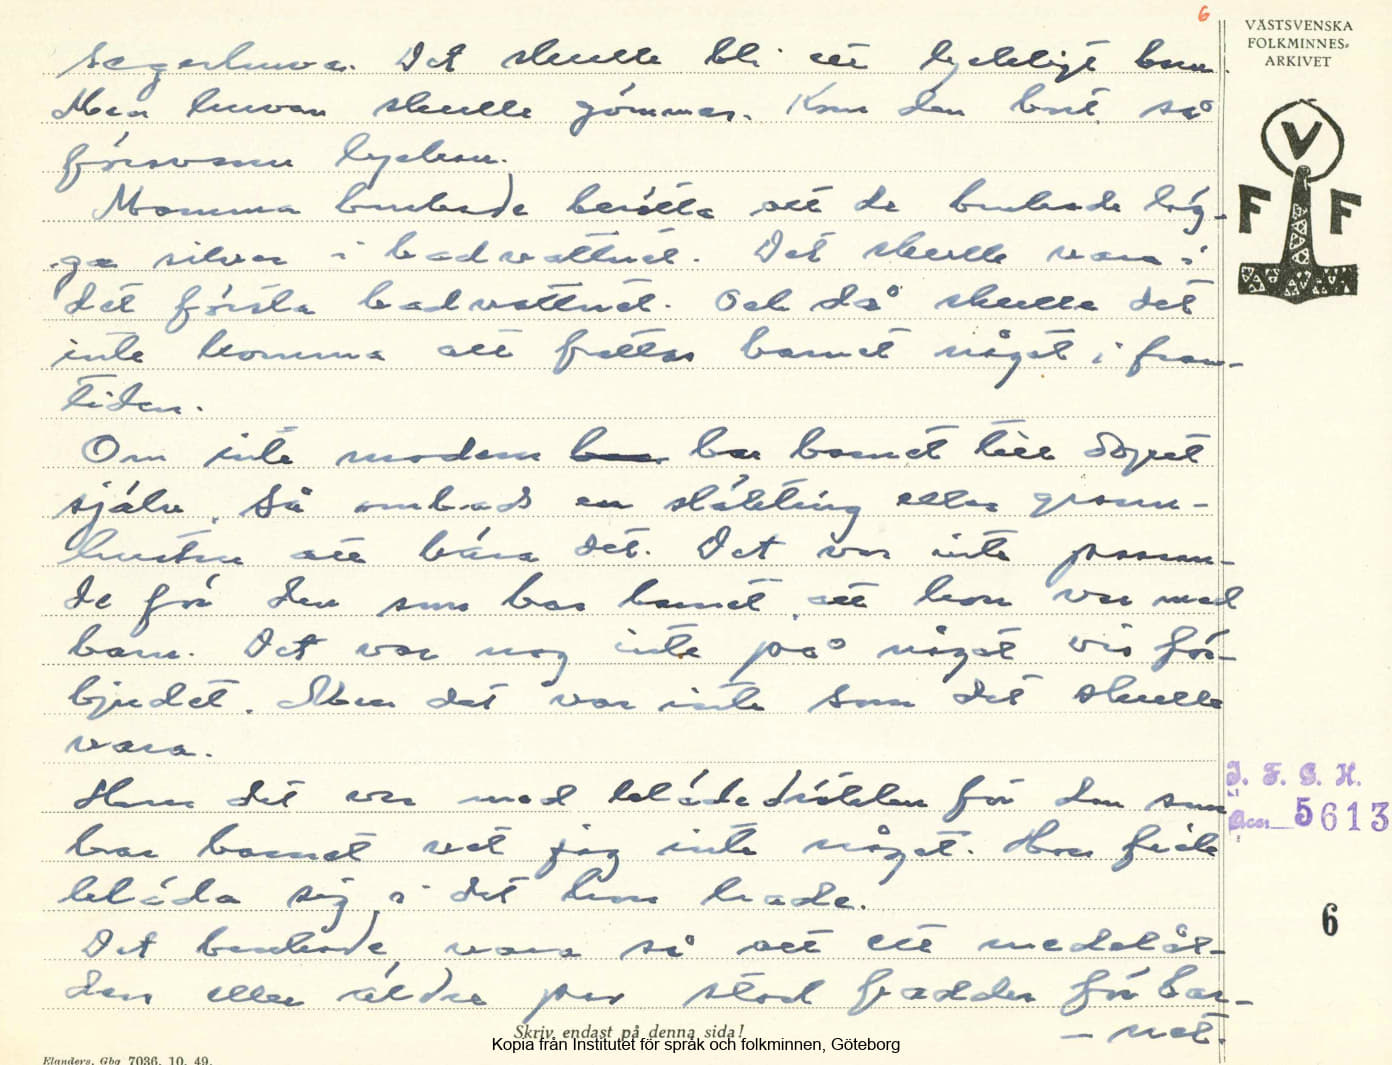 6
VÄSTSVENSKA
FOLKMINNES-
ARKIVET
V
F F
Segerhuva. Det skulle bli ett lyckligt barn.
Men huvan skulle gömmas. Kom den bort så
försvann lyckan.
Mamma brukade berätta att de brukade läg-
ga silver i badvattnet. Det skulle vara i
det första badvattnet. Och då skulle det
inte komma att fattas barnet något i fram-
tiden.
Om inte modern bar barnet till dopet
själv. Så ombads en släkting eller grann-
hustru att bära det. Det var inte passan-
de för den som bar barnet att hon var med
barn. Det var nog inte på något vis för-
bjudet. Men det var inte som det skulle
vara.
Hur det var med klädedräkten för den som
bar barnet vet jag inte något. Hon fick
kläda sig i det hon hade.
Det brukade vara så att ett medelål-
ders eller äldre par stod fadder för bar-
- net.
I. F. G. H.
Acc. 5613
6
Skriv endast på denna sida!
Kopia från Institutet för språk och folkminnen, Göteborg
Elanders, Gbg 7036. 10. 49.